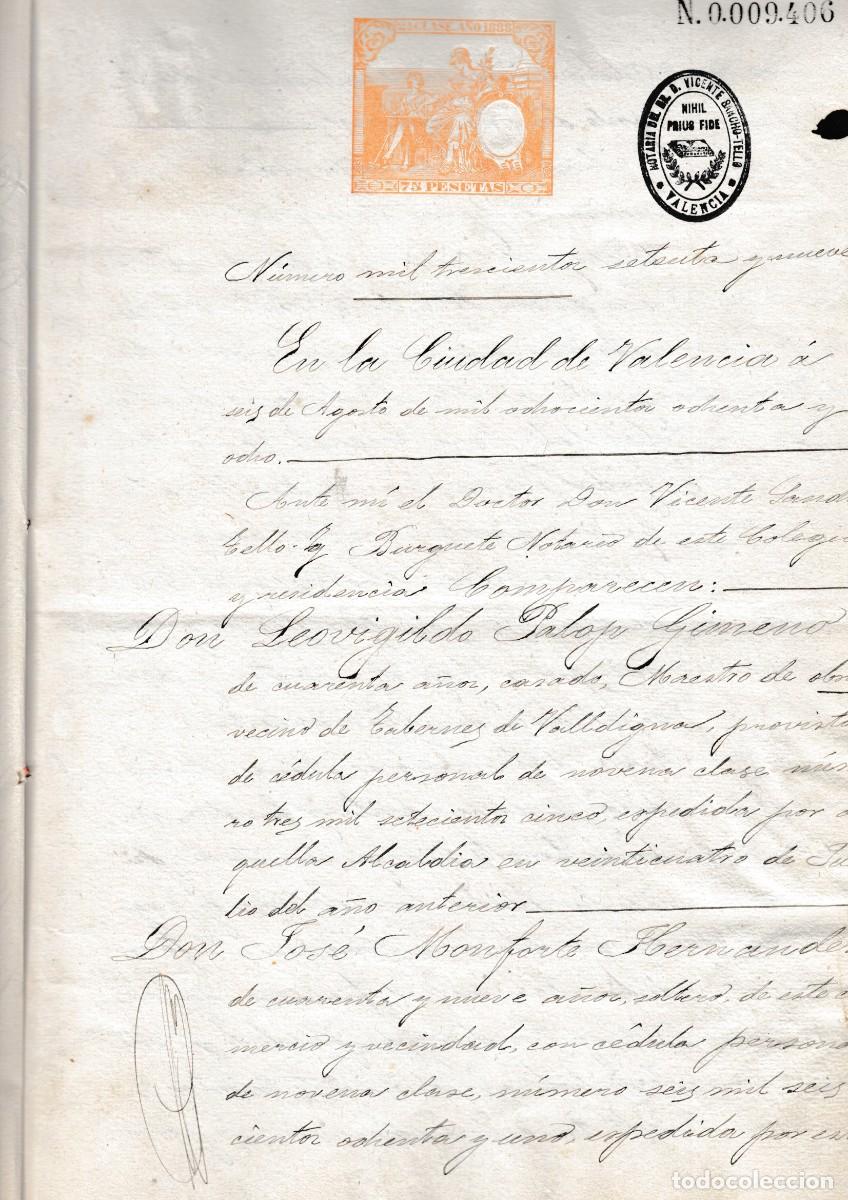 N.0.009.406
2ª CLASE AÑO 1888
75 PESETAS
NOTARIA DEL DR. D. VICENTE SANCHO-TELLO
NIHIL
PRIUS FIDE
VALENCIA
Número mil trescientos setenta y nueve
En la Ciudad de Valencia á
seis de Agosto de mil ochocientos ochenta y
ocho.
Ante mí el Doctor Don Vicente Sancho
Tello y Burguete Notario de este Colegio
y residencia Comparecen:
Don Leovigildo Palop Gimeno
de cuarenta años, casado, Maestro de obr
vecino de Tabernes de Valldigna, provisto
de cédula personal de novena clase núm
ro tres mil setecientos cinco, expedida por a
quella Alcaldia en veinticuatro de Ju
lio del año anterior
Don José Monforte Hernandez
de cuarenta y nueve años, soltero, de este co
mercio y vecindad, con cédula persona
de novena clase, número seis mil seis
cientos ochenta y uno, expedida por es
todocoleccion